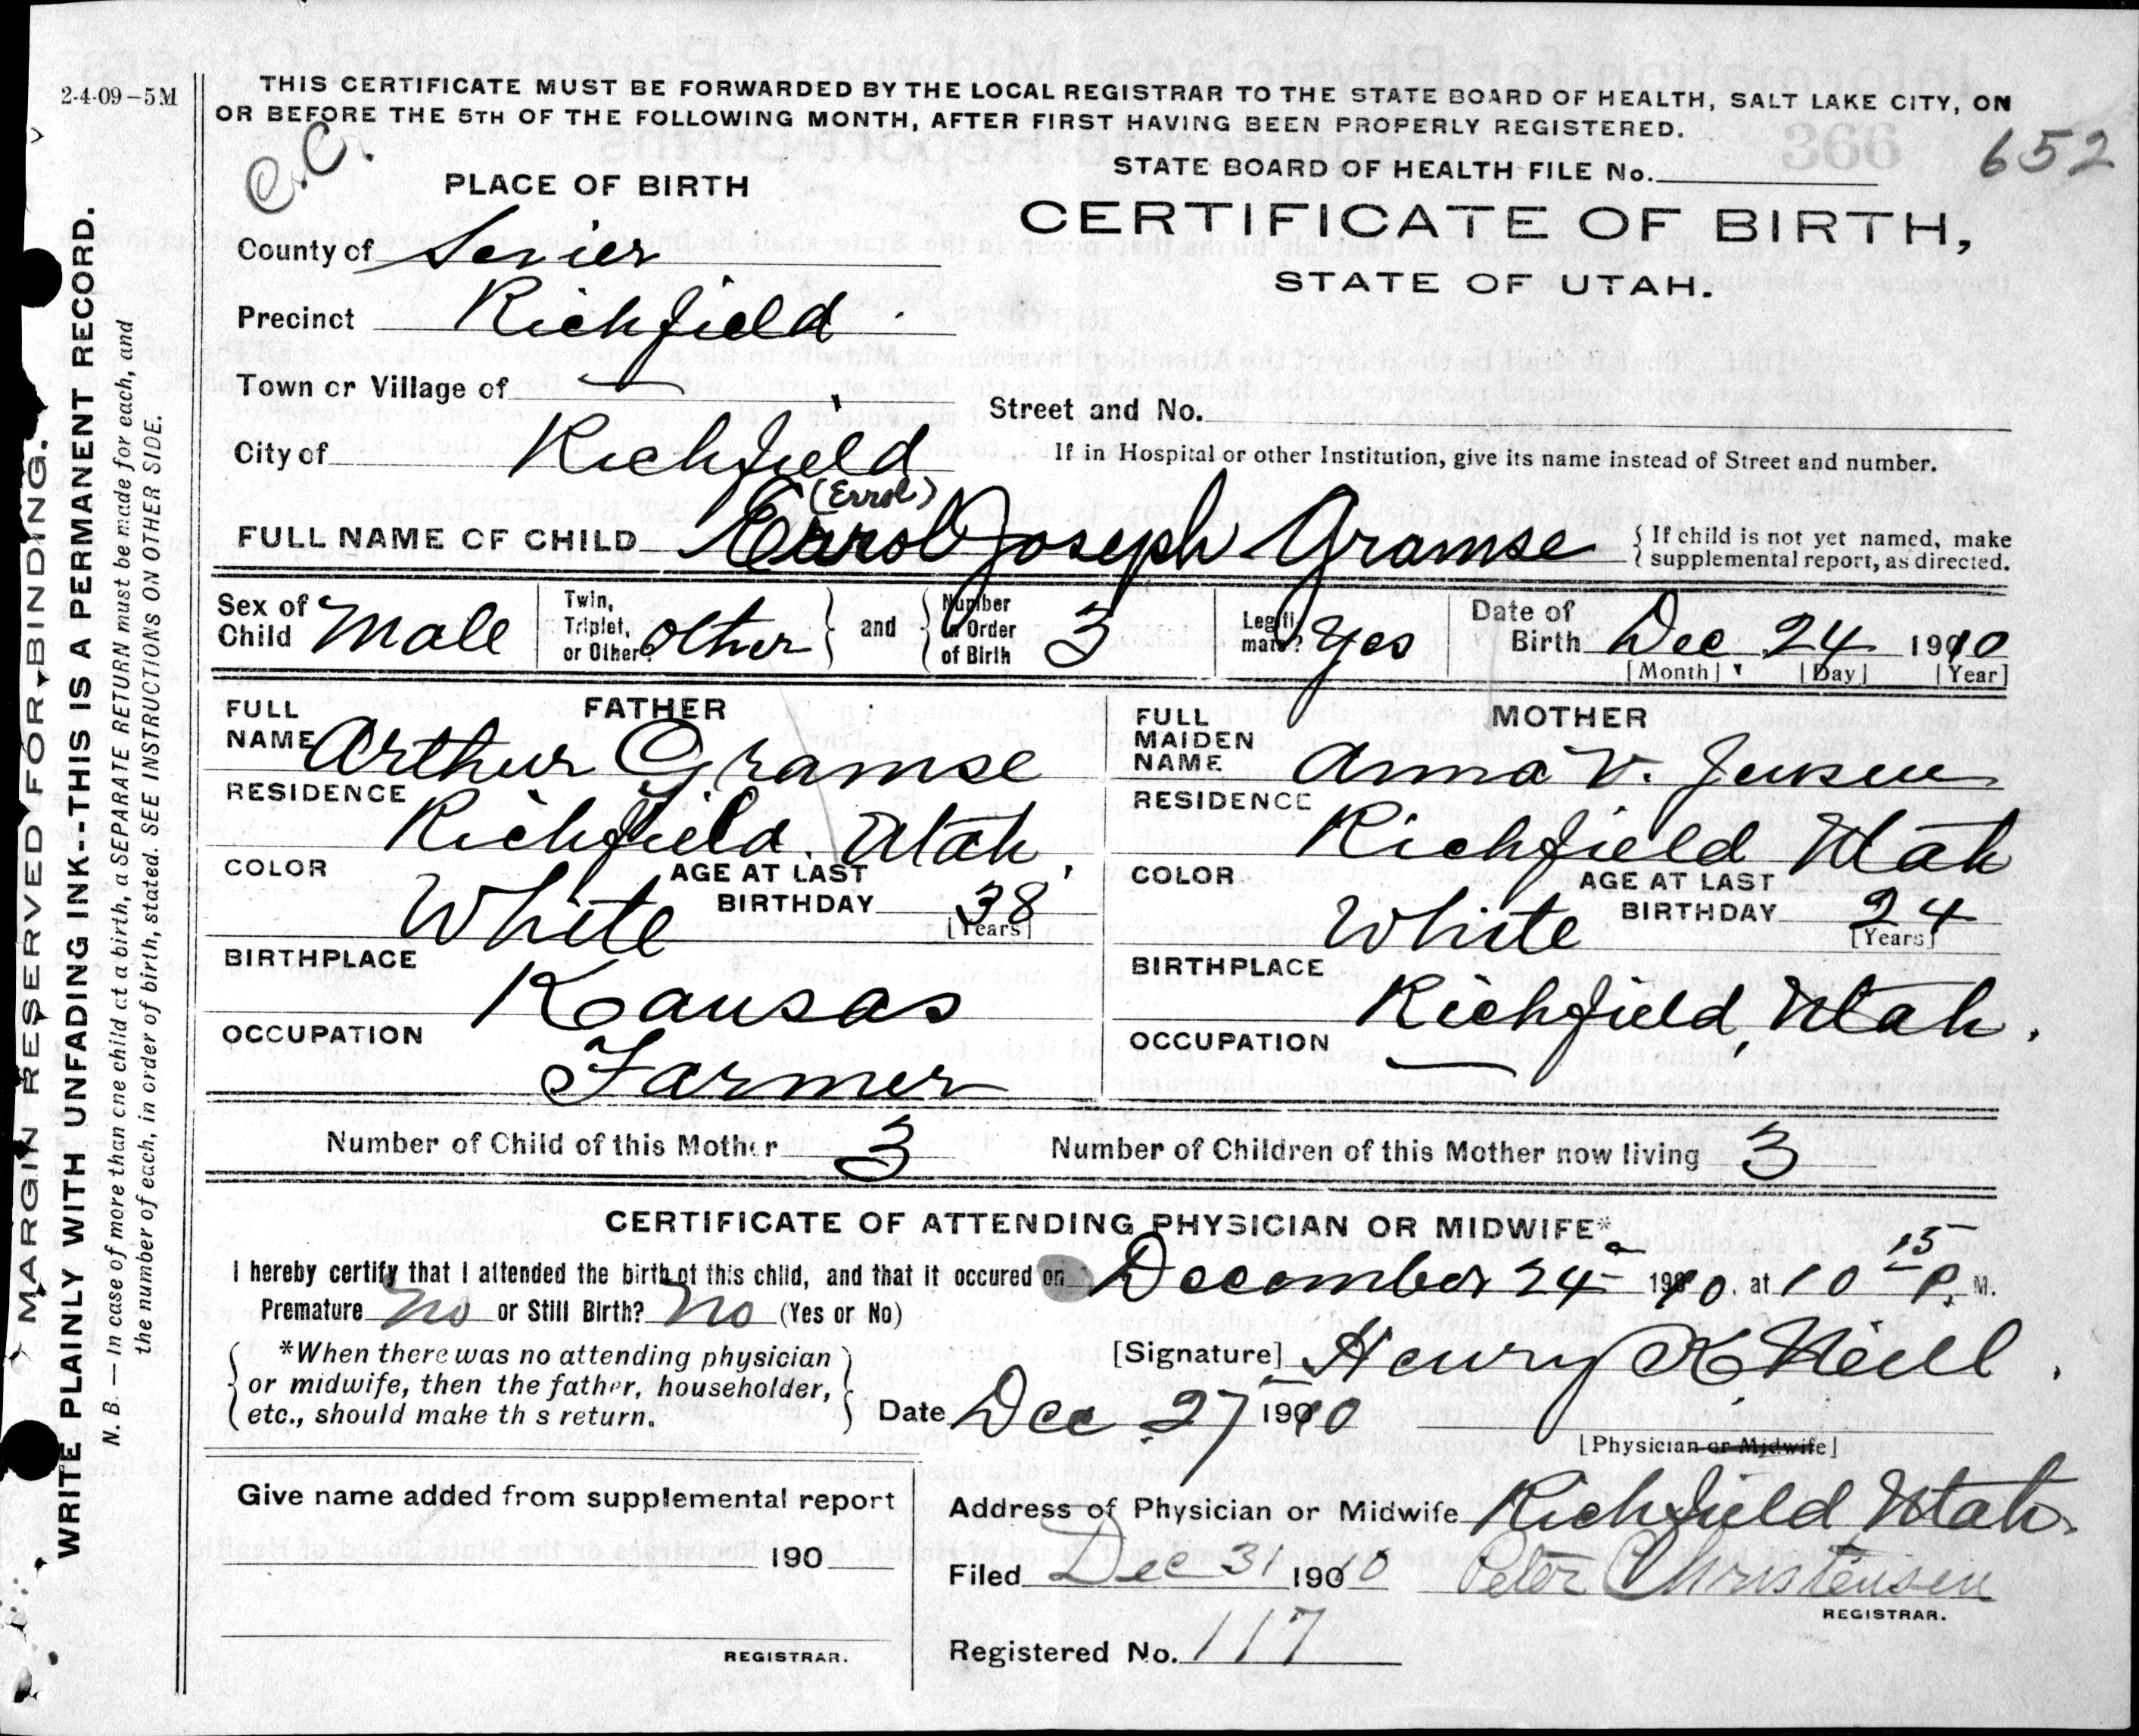 2-4-09-5M
THIS CERTIFICATE MUST BE FORWARDED BY THE LOCAL REGISTRAR TO THE STATE BOARD OF HEALTH, SALT LAKE CITY, ON
OR BEFORE THE 5TH OF THE FOLLOWING MONTH, AFTER FIRST HAVING BEEN PROPERLY REGISTERED.
C.C.
366
652
STATE BOARD OF HEALTH FILE No.
PLACE OF BIRTH
CERTIFICATE OF BIRTH,
STATE OF UTAH.
County of Sevier
Precinct Richfield
Town or Village of —
Street and No.
City of Richfield
If in Hospital or other Institution, give its name instead of Street and number.
(Errol)
FULL NAME OF CHILD Errol Joseph Gramse
{ If child is not yet named, make
supplemental report, as directed.
Sex of Child Male
Twin, Triplet, or Other? Other } and { Number in Order of Birth 3
Legitimate? Yes
Date of Birth Dec 24 1910
[Month] [Day] [Year]
FATHER
FULL NAME Arthur Gramse
RESIDENCE Richfield. Utah.
COLOR White
AGE AT LAST BIRTHDAY 38
[Years]
BIRTHPLACE Kansas
OCCUPATION Farmer
MOTHER
FULL MAIDEN NAME Anna V. Jensen
RESIDENCE Richfield Utah
COLOR White
AGE AT LAST BIRTHDAY 24
[Years]
BIRTHPLACE Richfield, Utah.
OCCUPATION —
Number of Child of this Mother 3 Number of Children of this Mother now living 3
CERTIFICATE OF ATTENDING PHYSICIAN OR MIDWIFE*
I hereby certify that I attended the birth of this child, and that it occured on December 24 1910. at 10 15 P. M.
Premature No or Still Birth? No (Yes or No)
{ *When there was no attending physician
or midwife, then the father, householder,
etc., should make th s return. }
[Signature] Henry K Neill.
Date Dec. 27 1910
[Physician or Midwife]
Give name added from supplemental report
190
REGISTRAR.
Address of Physician or Midwife Richfield Utah.
Filed Dec 31 1910 Peter Christensen
REGISTRAR.
Registered No. 117
MARGIN RESERVED FOR BINDING.
WRITE PLAINLY WITH UNFADING INK--THIS IS A PERMANENT RECORD.
N. B. — In case of more than one child at a birth, a SEPARATE RETURN must be made for each, and
the number of each, in order of birth, stated. SEE INSTRUCTIONS ON OTHER SIDE.